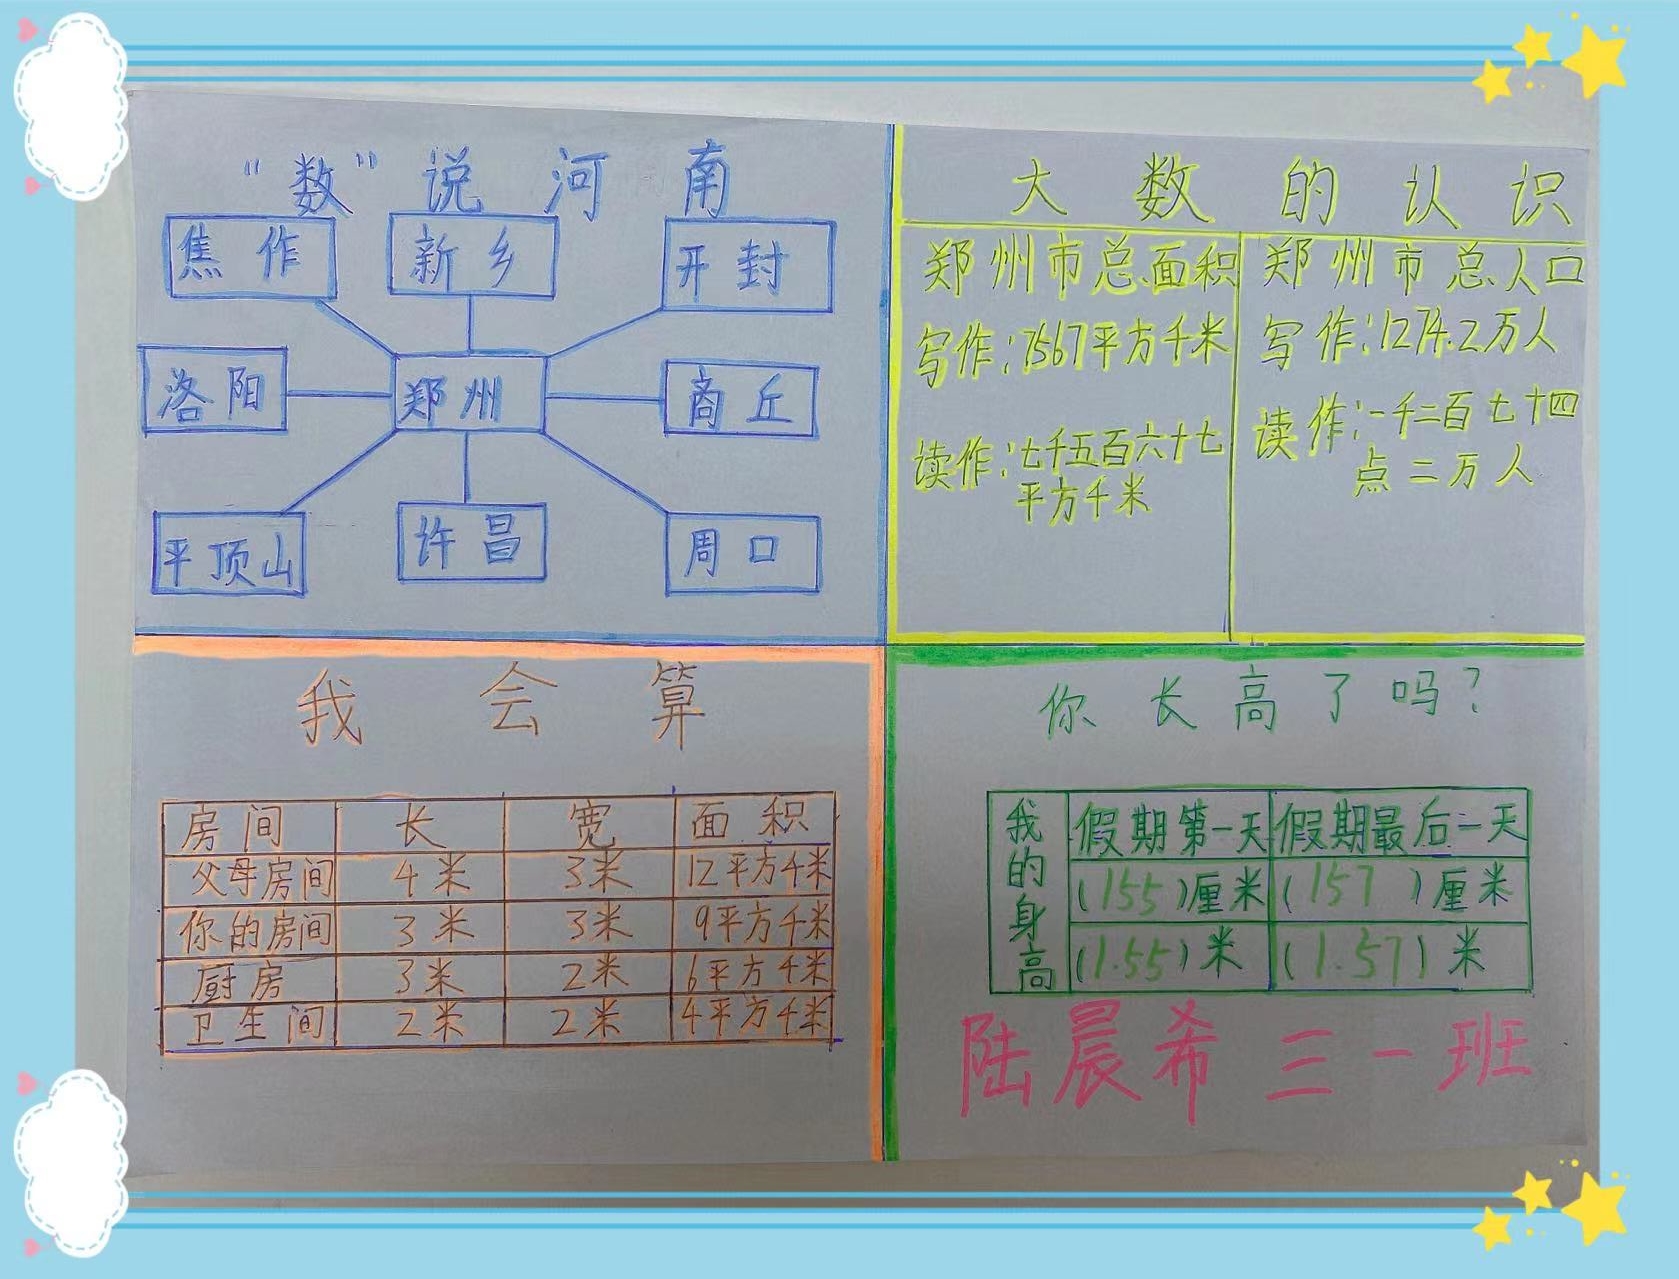 “数”说河南
焦作 新乡 开封
洛阳 郑州 商丘
平顶山 许昌 周口
大数的认识
郑州市总面积
写作:7567平方千米
读作:七千五百六十七
平方千米
郑州市总人口
写作:1274.2万人
读作:一千二百七十四
点二万人
我会算
房间 长 宽 面积
父母房间 4米 3米 12平方千米
你的房间 3米 3米 9平方千米
厨房 3米 2米 6平方千米
卫生间 2米 2米 4平方千米
你长高了吗?
我的身高
假期第一天 假期最后一天
(155)厘米 (157)厘米
(1.55)米 (1.57)米
陆晨希三一班